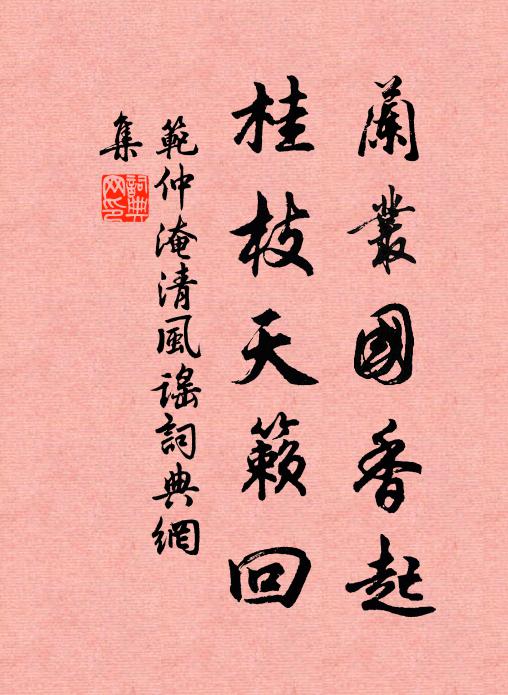 蘭叢國香起
桂枝天籟回
範仲淹清風謠詞典網
集
詞典
网印